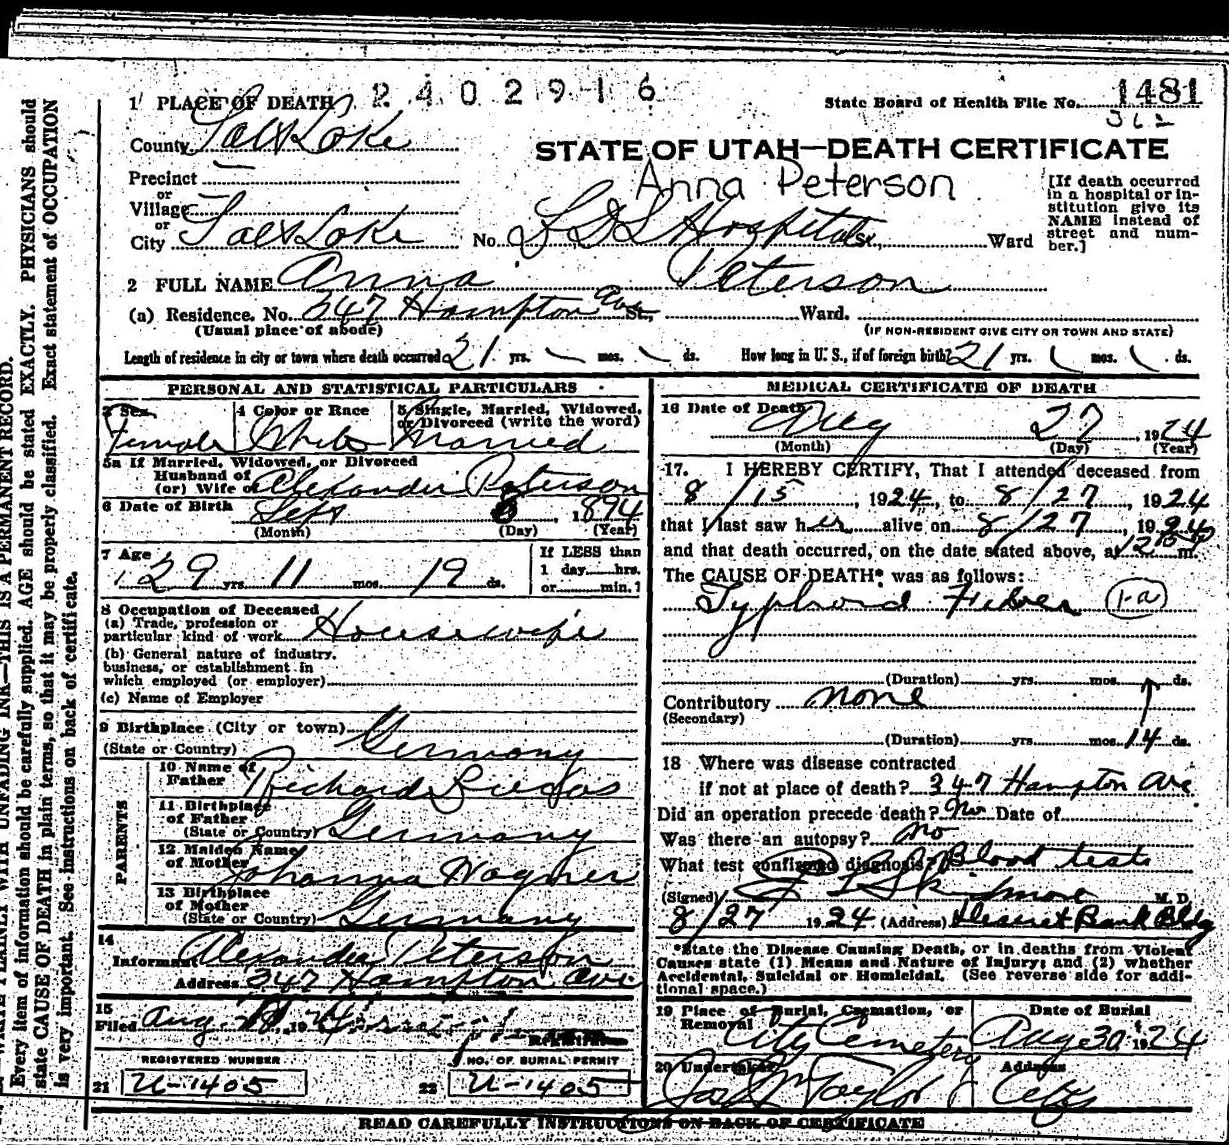 1 PLACE OF DEATH 2402916
State Board of Health File No. 1481
362
County Salt Lake
STATE OF UTAH—DEATH CERTIFICATE
Anna Peterson
Precinct —
or
Village —
or
City Salt Lake No. L D S Hospital St., Ward
[If death occurred
in a hospital or in-
stitution give its
NAME instead of
street and num-
ber.]
2 FULL NAME Anna Peterson
(a) Residence. No. 347 Hampton Ave St., Ward.
(Usual place of abode) (IF NON-RESIDENT GIVE CITY OR TOWN AND STATE)
Length of residence in city or town where death occurred 21 yrs. — mos. — ds. How long in U. S., if of foreign birth? 21 yrs. mos. ds.
PERSONAL AND STATISTICAL PARTICULARS
3 Sex Female
4 Color or Race White
5 Single, Married, Widowed,
or Divorced (write the word)
Married
5a If Married, Widowed, or Divorced
Husband of
(or) Wife of Alexander Peterson
6 Date of Birth Sept 8, 1894
(Month) (Day) (Year)
7 Age 29 yrs. 11 mos. 19 ds.
If LESS than
1 day......hrs.
or......min.?
8 Occupation of Deceased
(a) Trade, profession or
particular kind of work Housewife
(b) General nature of industry,
business, or establishment in
which employed (or employer)
(c) Name of Employer
9 Birthplace (City or town)
(State or Country) Germany
PARENTS
10 Name of
Father Richard
11 Birthplace
of Father
(State or Country) Germany
12 Maiden Name
of Mother Johanna Wagner
13 Birthplace
of Mother
(State or Country) Germany
14
Informant Alexander Peterson
Address 347 Hampton Ave
15
Filed Aug. 1924
Registrar
REGISTERED NUMBER
21 U-1405
NO. OF BURIAL PERMIT
22 U-1405
MEDICAL CERTIFICATE OF DEATH
16 Date of Death Aug 27, 1924
(Month) (Day) (Year)
17. I HEREBY CERTIFY, That I attended deceased from
8/15, 1924, to 8/27, 1924
that I last saw her alive on 8/27, 1924
and that death occurred, on the date stated above, at m.
The CAUSE OF DEATH* was as follows:
Typhoid Fever (1-a)
(Duration) yrs. mos. ds.
Contributory none
(Secondary)
(Duration) yrs. mos. 14 ds.
18 Where was disease contracted
if not at place of death? 347 Hampton Ave
Did an operation precede death? No Date of
Was there an autopsy? No
What test confirmed diagnosis? Blood tests
(Signed) Skidmore M. D.
8/27 1924 (Address) Deseret Bank Bldg
*State the Disease Causing Death, or in deaths from Violent
Causes state (1) Means and Nature of Injury; and (2) whether
Accidental, Suicidal or Homicidal. (See reverse side for addi-
tional space.)
19 Place of Burial, Cremation, or
Removal City Cemetery
Date of Burial
Aug 30 1924
20 Undertaker Taylor
Address City
READ CAREFULLY INSTRUCTIONS ON BACK OF CERTIFICATE
WRITE PLAINLY WITH UNFADING INK—THIS IS A PERMANENT RECORD.
Every item of information should be carefully supplied. AGE should be stated EXACTLY. PHYSICIANS should
state CAUSE OF DEATH in plain terms, so that it may be properly classified. Exact statement of OCCUPATION
is very important. See instructions on back of certificate.